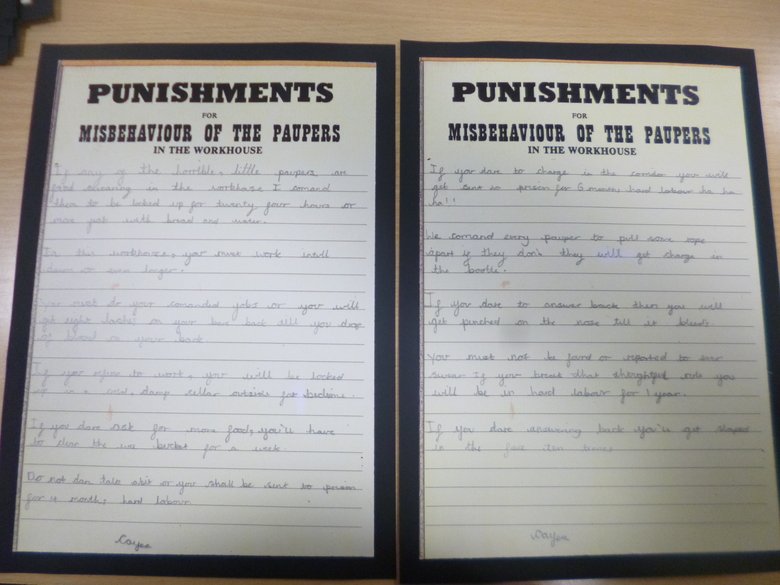 PUNISHMENTS
FOR
MISBEHAVIOUR OF THE PAUPERS
IN THE WORKHOUSE
If any of the horrible, little paupers are
swearing in the workhouse I comand
them to be locked up for twenty four hours or
more with bread and water.
In this workhouse, you must work intill
dawn or even longer.
You must do your comanded jobs or you will
get eight lashes on your bare back atill you drop
of blood on your back.
If you refuse to work, you will be locked
up in a cold, damp cellar outside for bedtime.
If you dare ask for more food, you'll have
to clear the wee bucket for a week.
Do not dan talk abit or you shall be sent to prison
for 14 months hard labour
PUNISHMENTS
FOR
MISBEHAVIOUR OF THE PAUPERS
IN THE WORKHOUSE
If you dare to charge in the corridor you will
get sent to prison for 6 months hard labour ha ha
ha!!
We comand every pauper to pull some rope
apart if they don't they will get charge in
the
If you dare to answer back then you will
get punched on the nose till it bleeds.
You must not be found or reported to ever
swear If you break that rule you
will be in hard labour for 1 year.
If you dare answering back you'll get slaped
in the face ten times